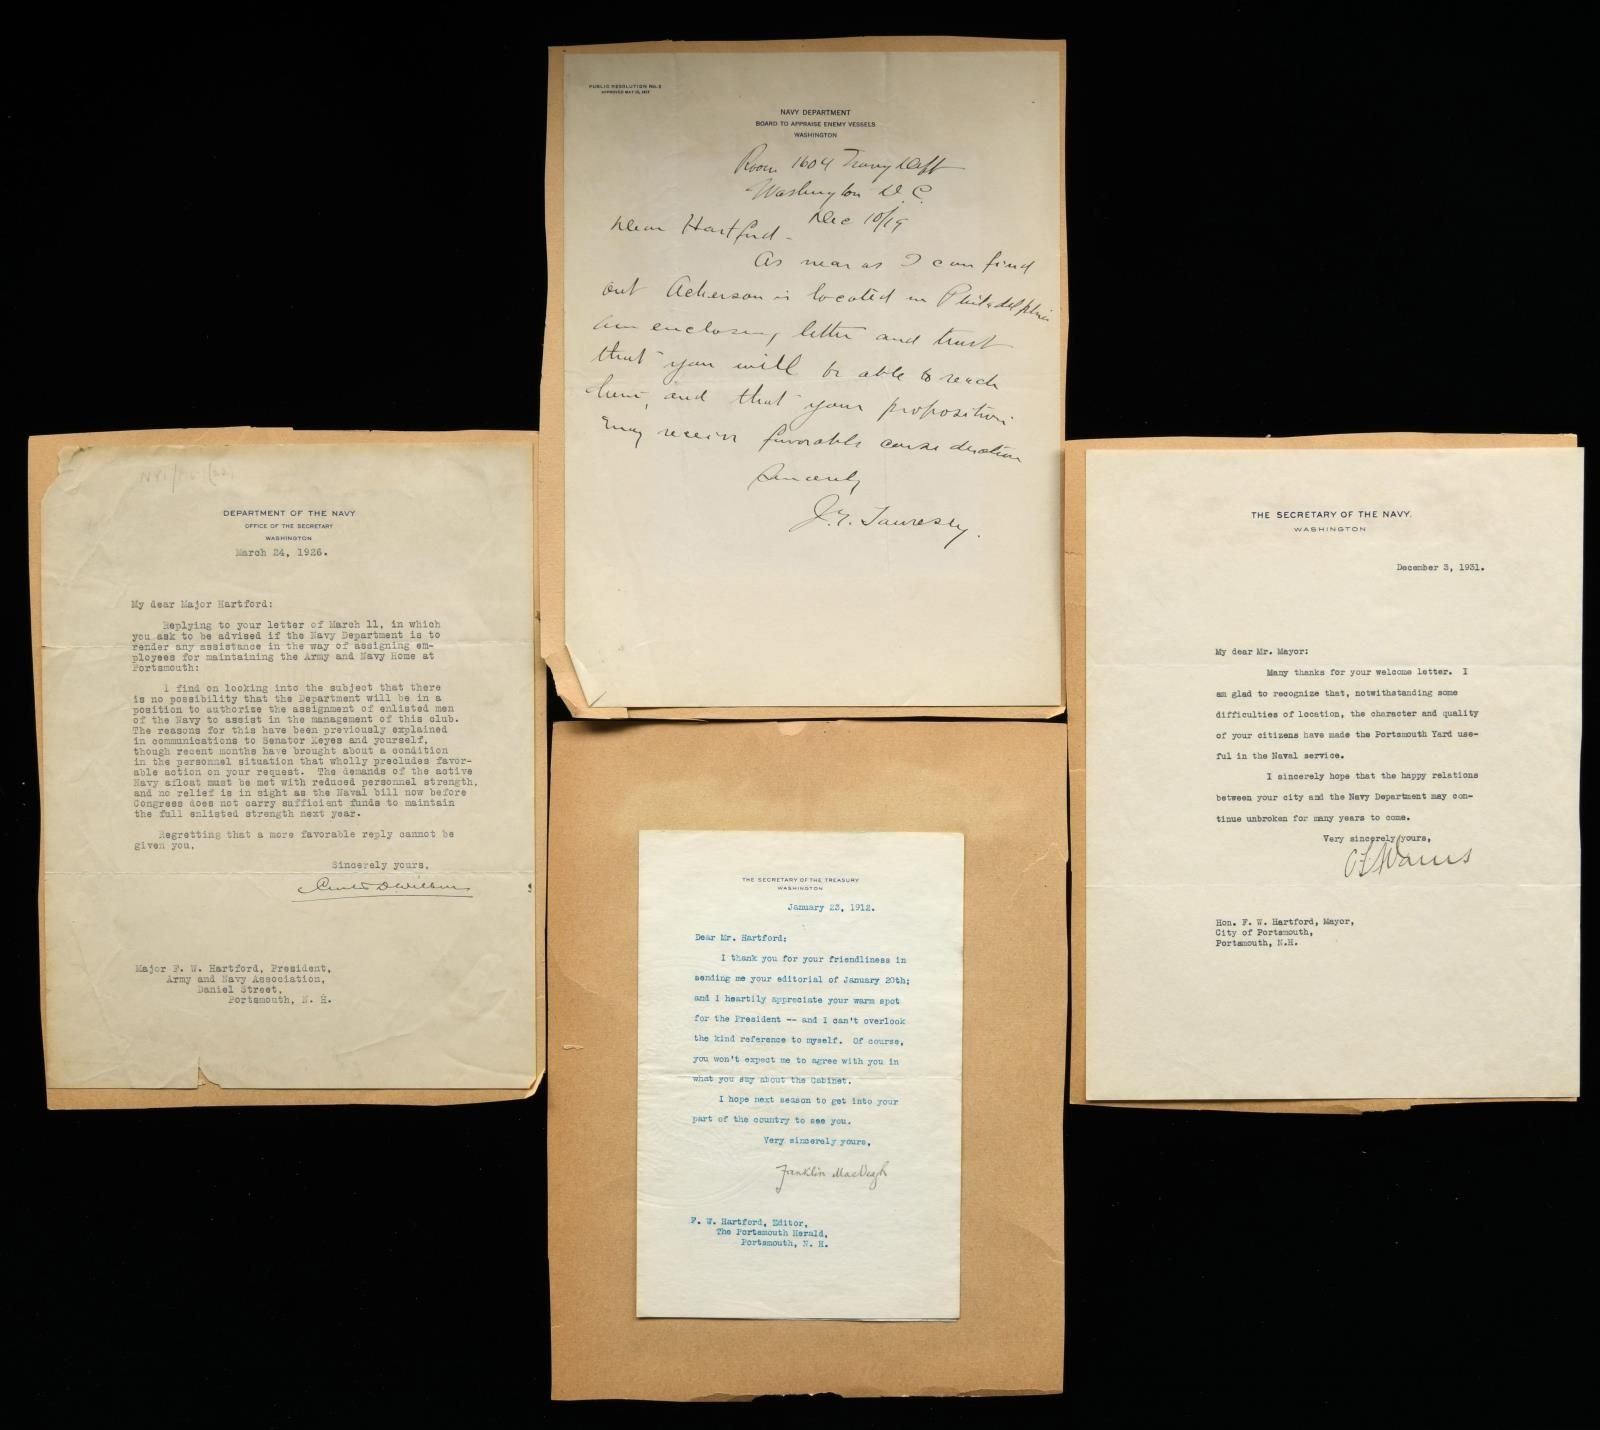 PUBLIC RESOLUTION No. 2
APPROVED MAY 12, 1917
NAVY DEPARTMENT
BOARD TO APPRAISE ENEMY VESSELS
WASHINGTON
Room 1604 Navy Dept
Washington D.C.
Dec 10/19
Dear Hartford -
As near as I can find
out Ackerson is located in Philadelphia
am enclosing letter and trust
that you will be able to reach
him, and that your proposition
may receive favorable consideration
Sincerely
J.G. Tawresey.
DEPARTMENT OF THE NAVY
OFFICE OF THE SECRETARY
WASHINGTON
March 24, 1926.
My dear Major Hartford:
Replying to your letter of March 11, in which
you ask to be advised if the Navy Department is to
render any assistance in the way of assigning em-
ployees for maintaining the Army and Navy Home at
Portsmouth:
I find on looking into the subject that there
is no possibility that the Department will be in a
position to authorize the assignment of enlisted men
of the Navy to assist in the management of this club.
The reasons for this have been previously explained
in communications to Senator Keyes and yourself,
though recent months have brought about a condition
in the personnel situation that wholly precludes favor-
able action on your request. The demands of the active
Navy afloat must be met with reduced personnel strength,
and no relief is in sight as the Naval bill now before
Congress does not carry sufficient funds to maintain
the full enlisted strength next year.
Regretting that a more favorable reply cannot be
given you,
Sincerely yours,
Curtis D. Wilbur
Major F. W. Hartford, President,
Army and Navy Association,
Daniel Street,
Portsmouth, N. H.
THE SECRETARY OF THE NAVY.
WASHINGTON
December 3, 1931.
My dear Mr. Mayor:
Many thanks for your welcome letter. I
am glad to recognize that, notwithstanding some
difficulties of location, the character and quality
of your citizens have made the Portsmouth Yard use-
ful in the Naval service.
I sincerely hope that the happy relations
between your city and the Navy Department may con-
tinue unbroken for many years to come.
Very sincerely yours,
C F Adams
Hon. F. W. Hartford, Mayor,
City of Portsmouth,
Portsmouth, N.H.
THE SECRETARY OF THE TREASURY
WASHINGTON
January 23, 1912.
Dear Mr. Hartford:
I thank you for your friendliness in
sending me your editorial of January 20th;
and I heartily appreciate your warm spot
for the President -- and I can't overlook
the kind reference to myself. Of course,
you won't expect me to agree with you in
what you say about the Cabinet.
I hope next season to get into your
part of the country to see you.
Very sincerely yours,
Franklin MacVeagh
F. W. Hartford, Editor,
The Portsmouth Herald,
Portsmouth, N. H.